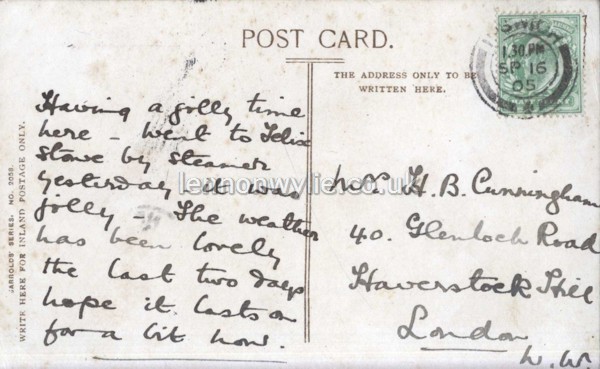 POST CARD.
THE ADDRESS ONLY TO BE
WRITTEN HERE.
SWICH
1.30 PM
SP 16
05
JARROLDS' SERIES. NO. 2038.
WRITE HERE FOR INLAND POSTAGE ONLY.
Having a jolly time
here – went to Felix
stowe by steamer
yesterday it was
jolly – The weather
has been lovely
the last two days
hope it lasts on
for a bit now.
lennonwylie.co.uk
Mr H. B. Cunningham
40. Glenloch Road
Haverstock Hill
London
N.W.